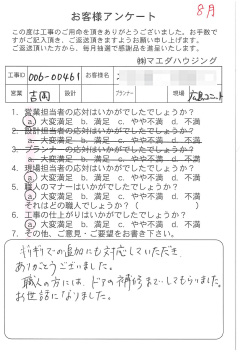 8月
お客様アンケート
この度は工事のご用命を頂きありがとうございました。お手数で
すがご記入頂き、ご返送頂きますようお願い申し上げます。
ご返送頂いた方から、毎月抽選で感謝品を進呈いたします。
㈱マエダハウジング
工事ID 006-00461 お客様名
営業 吉岡 設計 プランナー 現場
1. 営業担当者の応対はいかがでしたでしょうか?
ⓐ 大変満足 b. 満足 c. やや不満 d. 不満
2. 設計担当者の応対はいかがでしたでしょうか?
a. 大変満足 b. 満足 c. やや不満 d. 不満
3. プランナーの応対はいかがでしたでしょうか?
a. 大変満足 b. 満足 c. やや不満 d. 不満
4. 現場担当者の応対はいかがでしたでしょうか?
ⓐ 大変満足 b. 満足 c. やや不満 d. 不満
5. 職人のマナーはいかがでしたでしょうか?
ⓐ 大変満足 b. 満足 c. やや不満 d. 不満
それはどの職人でしょうか?( )
6. 工事の仕上がりはいかがでしたでしょうか?
ⓐ 大変満足 b. 満足 c. やや不満 d. 不満
7. その他、ご意見・ご要望をお書き下さい。
ギリギリでの追加にも対応していただき
ありがとうございました。
職人の方には、ドアの補修までしてもらいました。
お世話になりました。